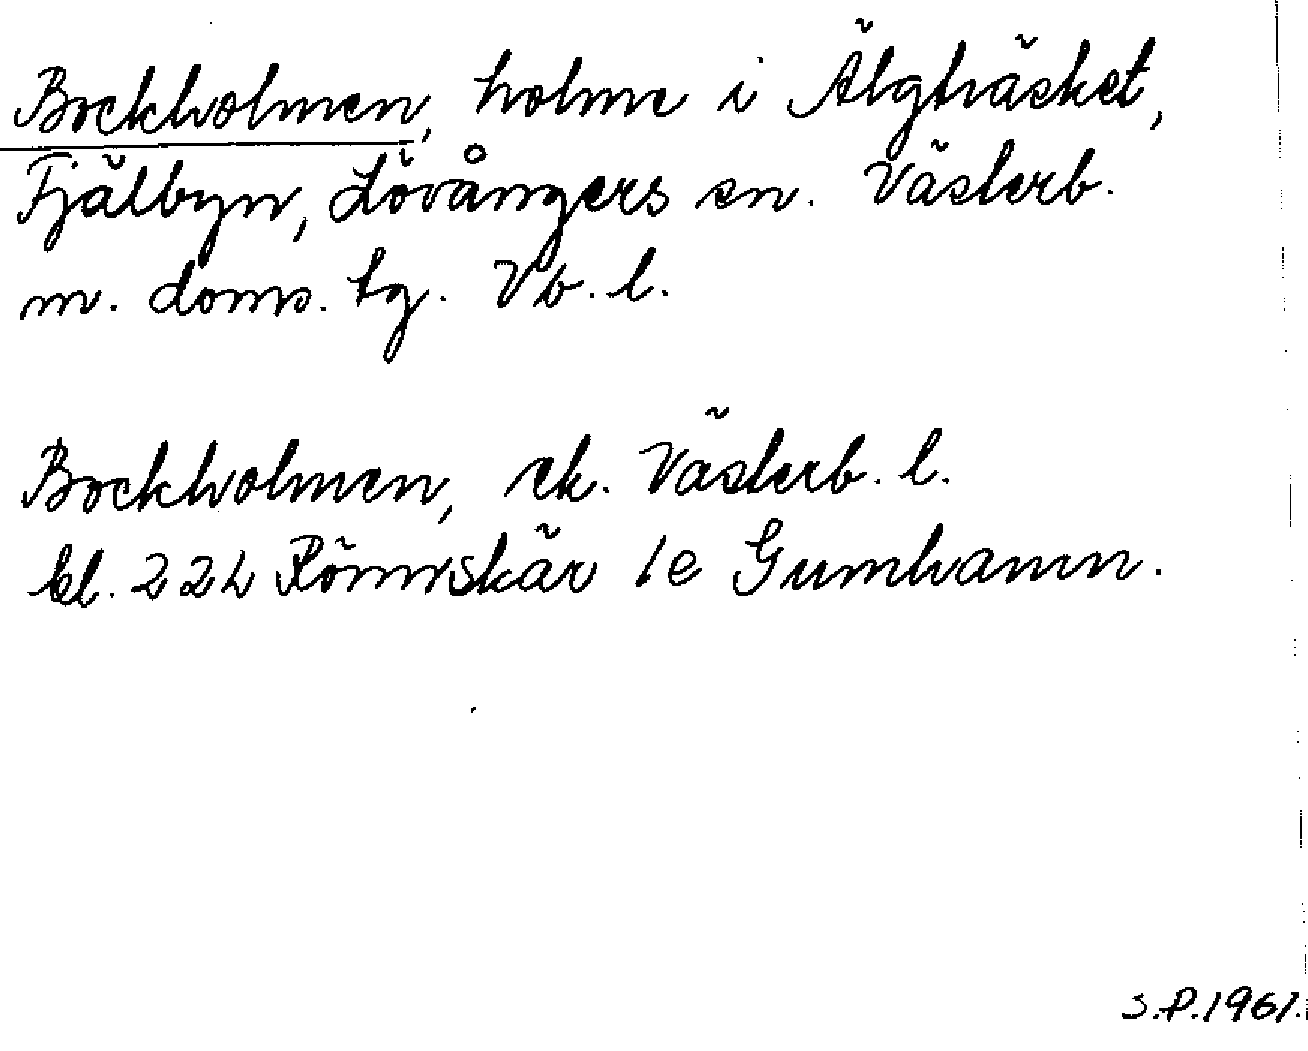 Bockholmen, holme i Älgträsket,
Fjälbyn, Lövångers sn. Västerb.
m. doms. tg. Vb. l.
Bockholmen, ek. Västerb. l.
bl. 222 Rönnskär 1e Gumhamn.
S.P. 1961.